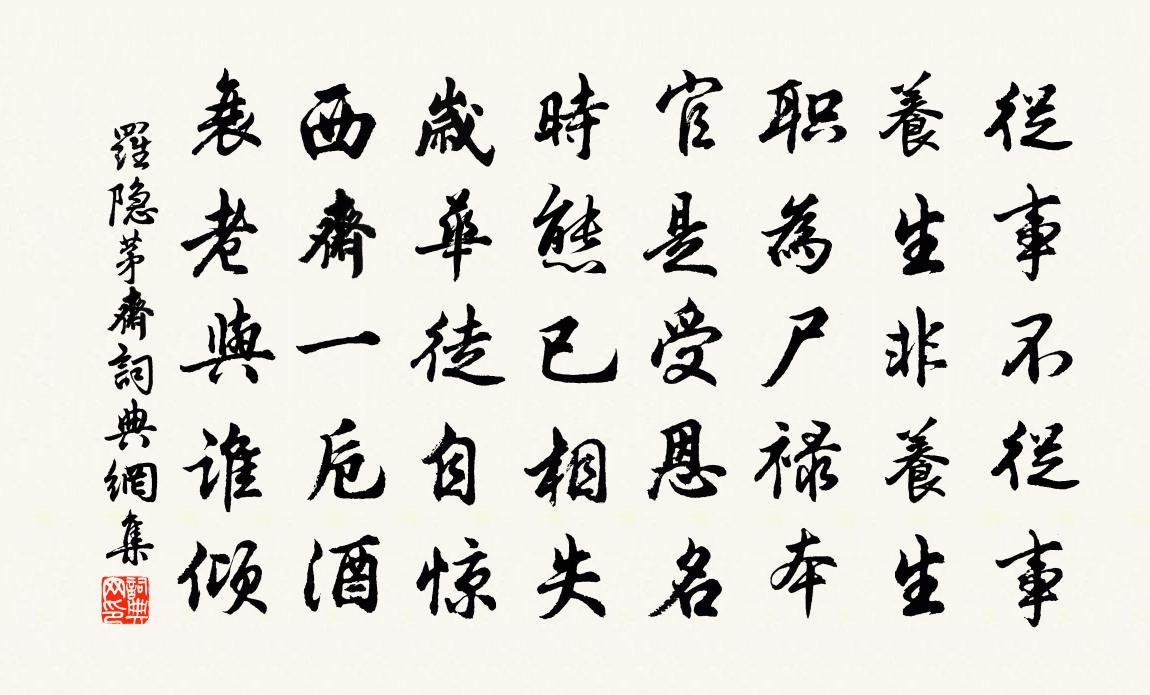 從事不從事
養生非養生
职為尸禄本
官是受恩名
時態已相失
歲華徒自惊
西齋一卮酒
衰老與谁倾
羅隐茅齋詞典網集
詞典网印